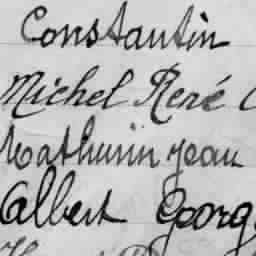 Constantin
Michel René
Mathurin jean
Albert Georg